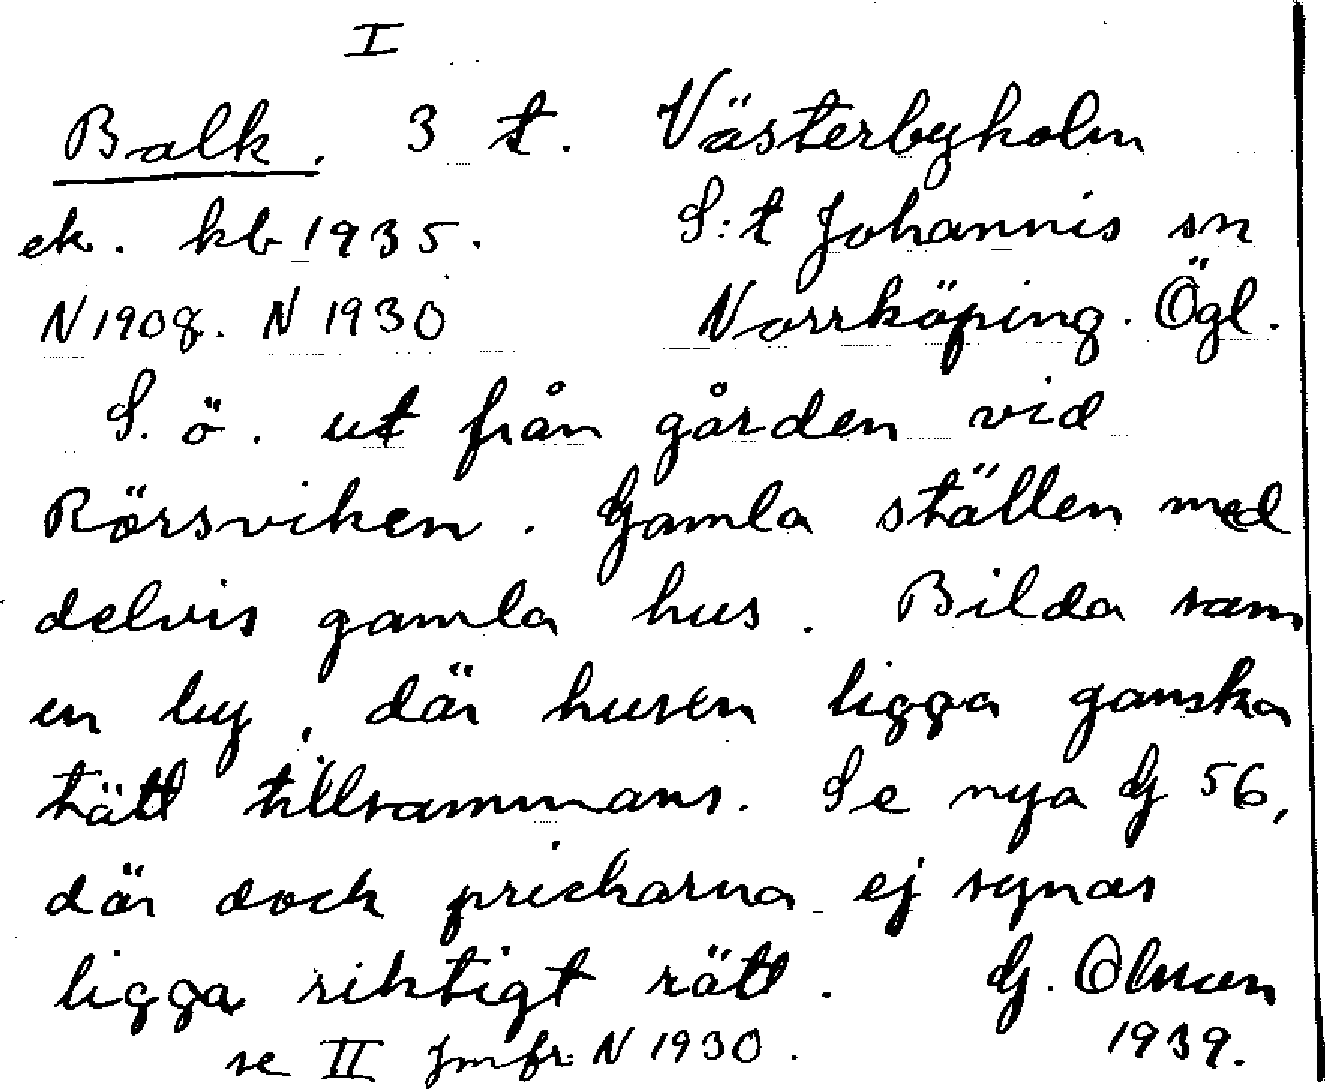 I
Balk. 3 t. Västerbyholm
ek. kb 1935. S:t Johannis sn
N 1908. N 1930 Norrköping. Ögl.
S. ö. ut från gården vid
Rörsviken. Gamla ställen med
delvis gamla hus. Bilda som
en by, där husen ligga ganska
tätt tillsammans. Se nya G 56,
där dock prickarna ej synas
ligga riktigt rätt. G. Olsson
se II Jmfr: N 1930. 1939.